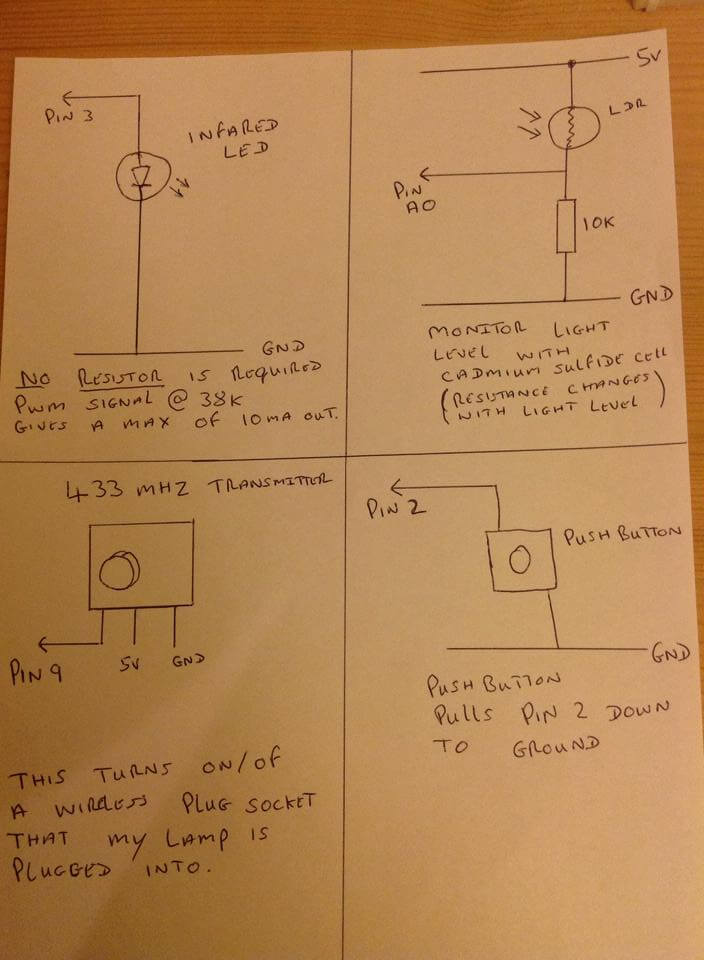 PIN 3
INFARED
LED
GND
NO RESISTOR IS REQUIRED
PWM SIGNAL @ 38K
GIVES A MAX OF 10MA OUT.
5V
LDR
PIN
A0
10K
GND
MONITOR LIGHT
LEVEL WITH
CADMIUM SULFIDE CELL
(RESISTANCE CHANGES
WITH LIGHT LEVEL)
433 MHZ TRANSMITTER
PIN 9
5V
GND
THIS TURNS ON/OF
A WIRELESS PLUG SOCKET
THAT MY LAMP IS
PLUGGED INTO.
PIN 2
PUSH BUTTON
GND
PUSH BUTTON
PULLS PIN 2 DOWN
TO GROUND